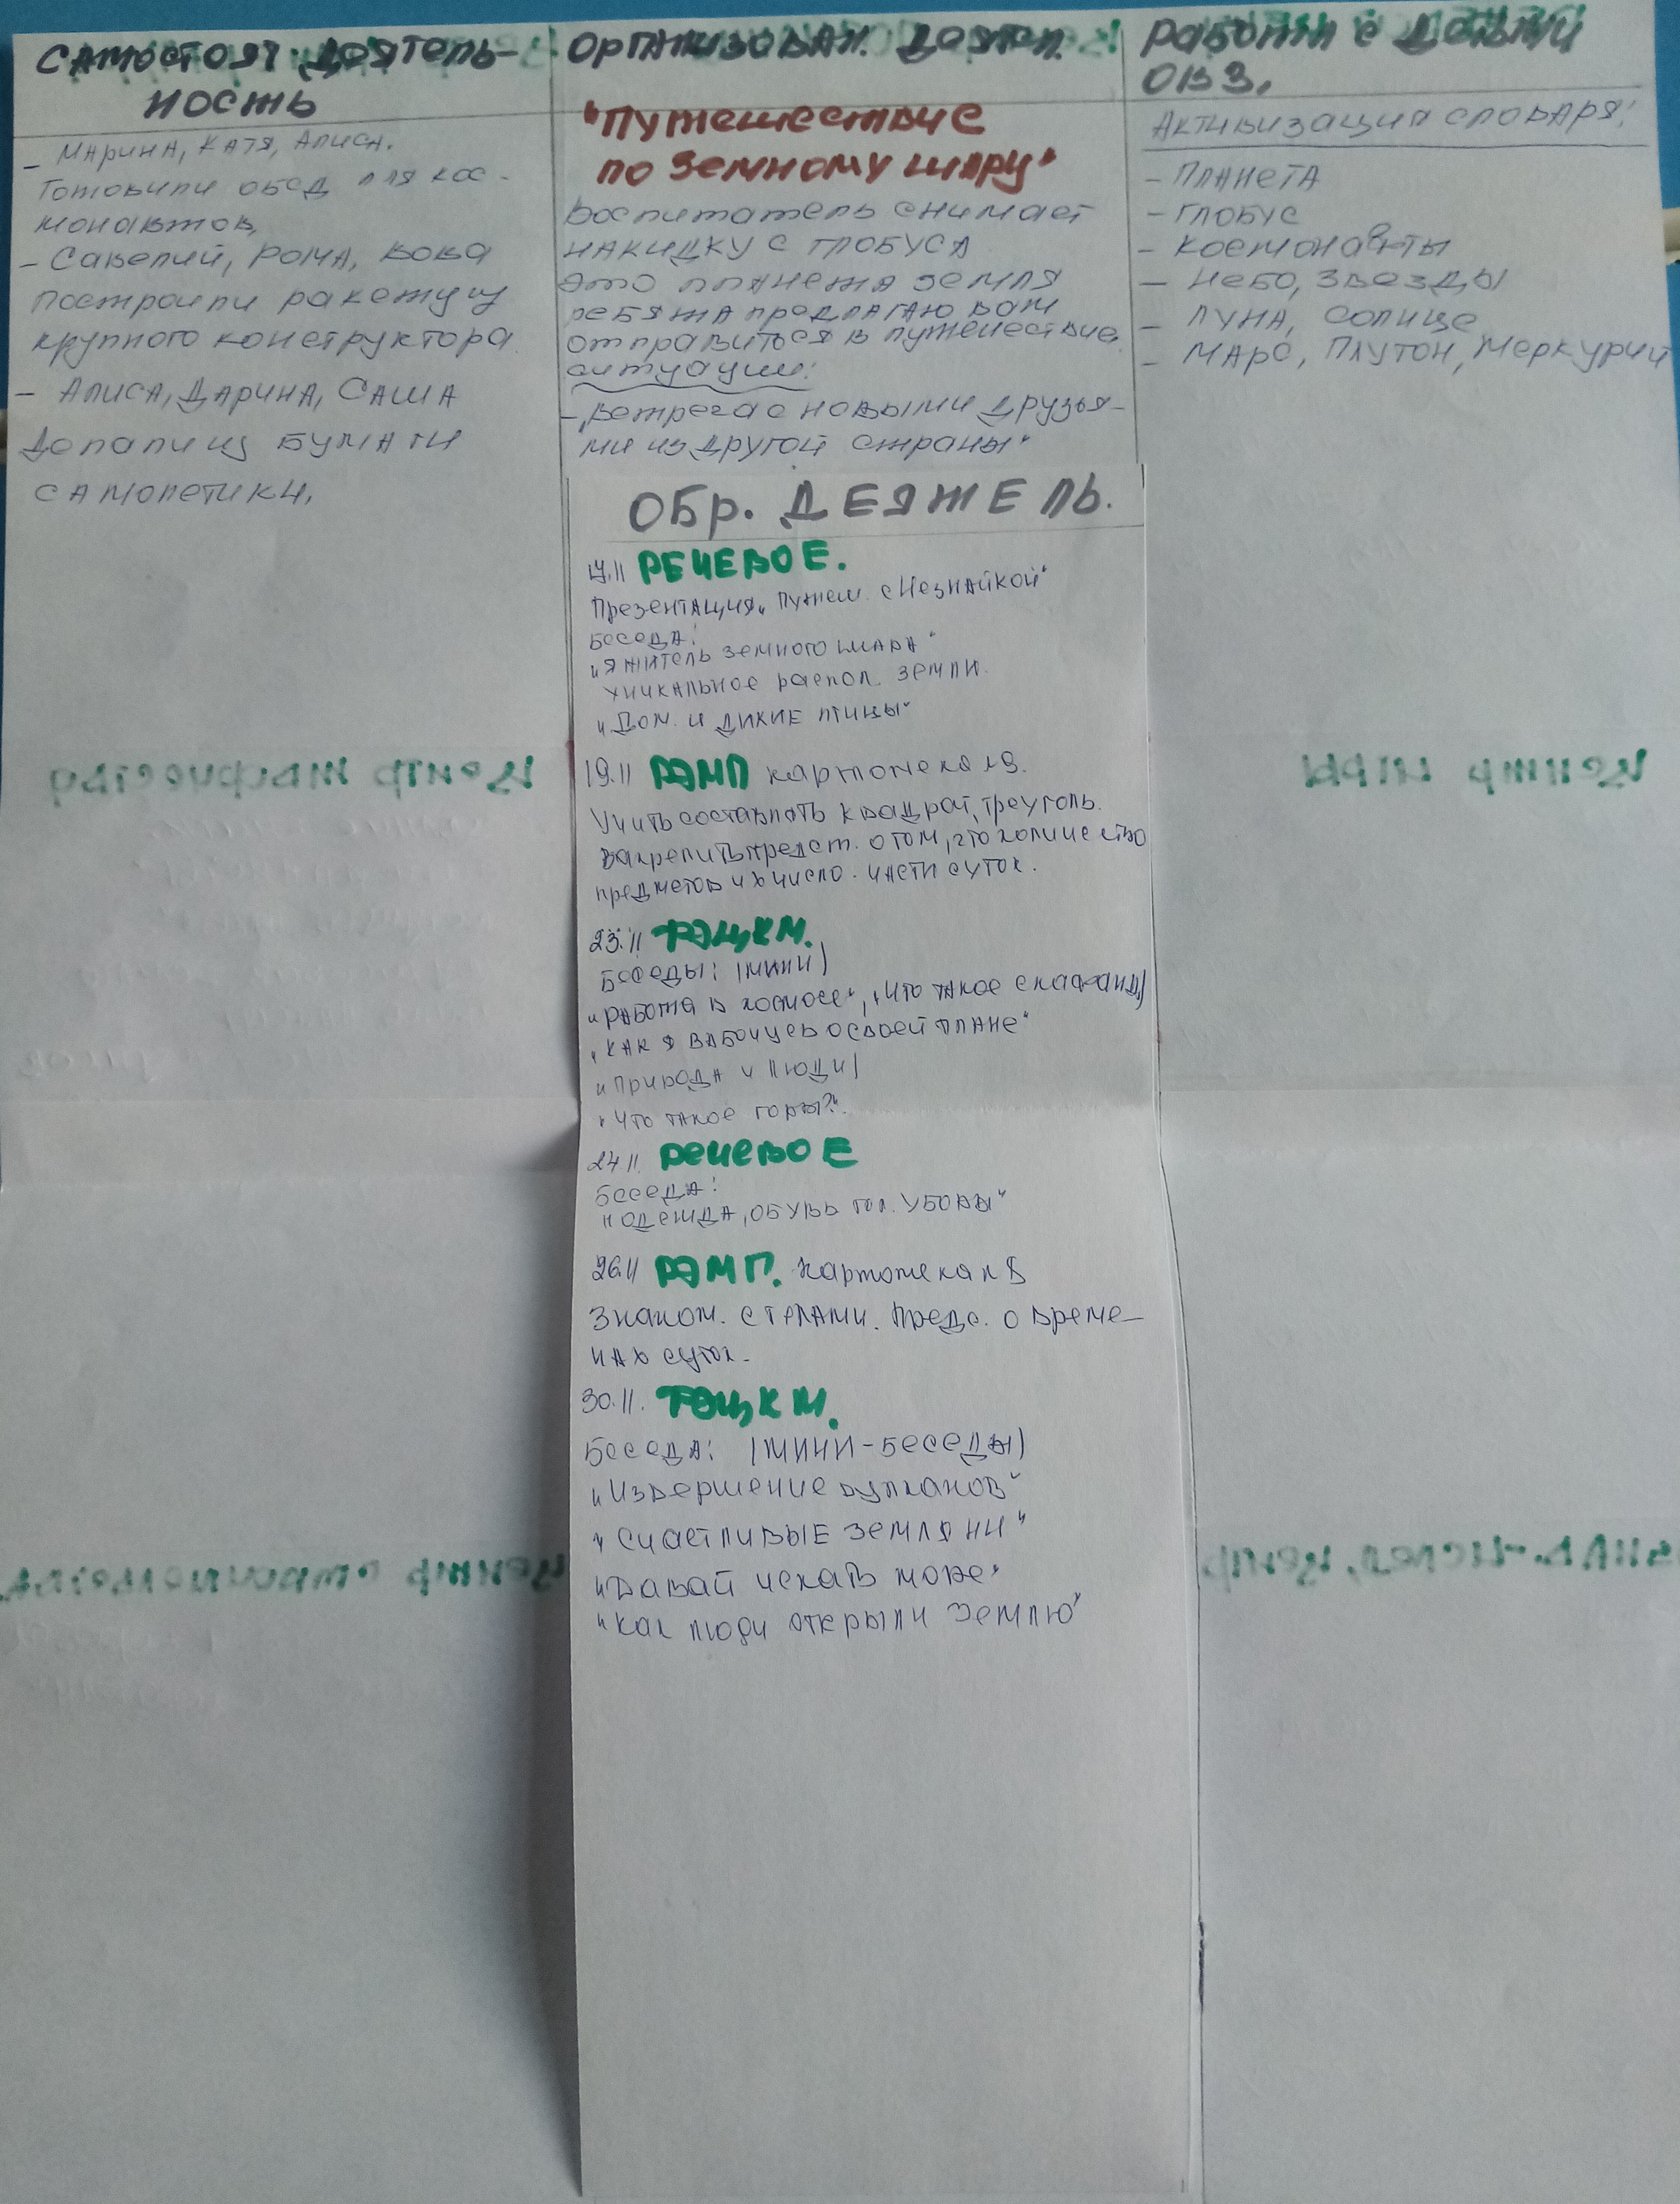 Самостоят. деятель-
ность
- Марина, Катя, Алиса.
Готовили обед для кос-
монавтов,
- Савелий, Рома, Вова
построили ракету из
крупного конструктора.
- Алиса, Дарина, Саша
Делали из бумаги
самолетики.
Организован. деятел.
"Путешествие
по земному шару"
Воспитатель снимает
накидку с глобуса
это планета Земля
ребята предлагаю вам
отправиться в путешествие.
ситуации:
- "Встреча с новыми друзья-
ми из другой страны"
Работа с детьми
ОВЗ.
Активизация словаря:
- Планета
- Глобус
- Космонавты
- Небо, звезды
- Луна, солнце
- Марс, Плутон, Меркурий
Обр. деятель.
Речевое.
Презентация „Путеш. с Незнайкой"
Беседа:
"Я житель земного шара"
Уникальное распол. земли.
"Дом. и дикие птицы"
19.11 РЭМП картотека
Учить составлять квадрат, треуголь.
Закрепить предст. о том, что количество
предметов их число. части суток.
23.11 ФЭЦКМ.
Беседы: (мини)
"Работа в космосе", "Что такое скафандр"
"Как я забочусь о своей плане"
"Природа и люди"
"Что такое горы?"
24.11. Речевое
Беседа:
"Одежда, обувь гол. уборы"
26.11 РЭМП. картотека
Знаком. с телами. Предс. о време-
нах суток.
30.11. ФЭЦКМ.
Беседа: (мини-беседы)
"Извершение вулканов"
"Счастливые земляни"
"Давай искать море"
"Как люди открыли Землю"
Центр творчества
Центр игры
Центр строительства
Центр